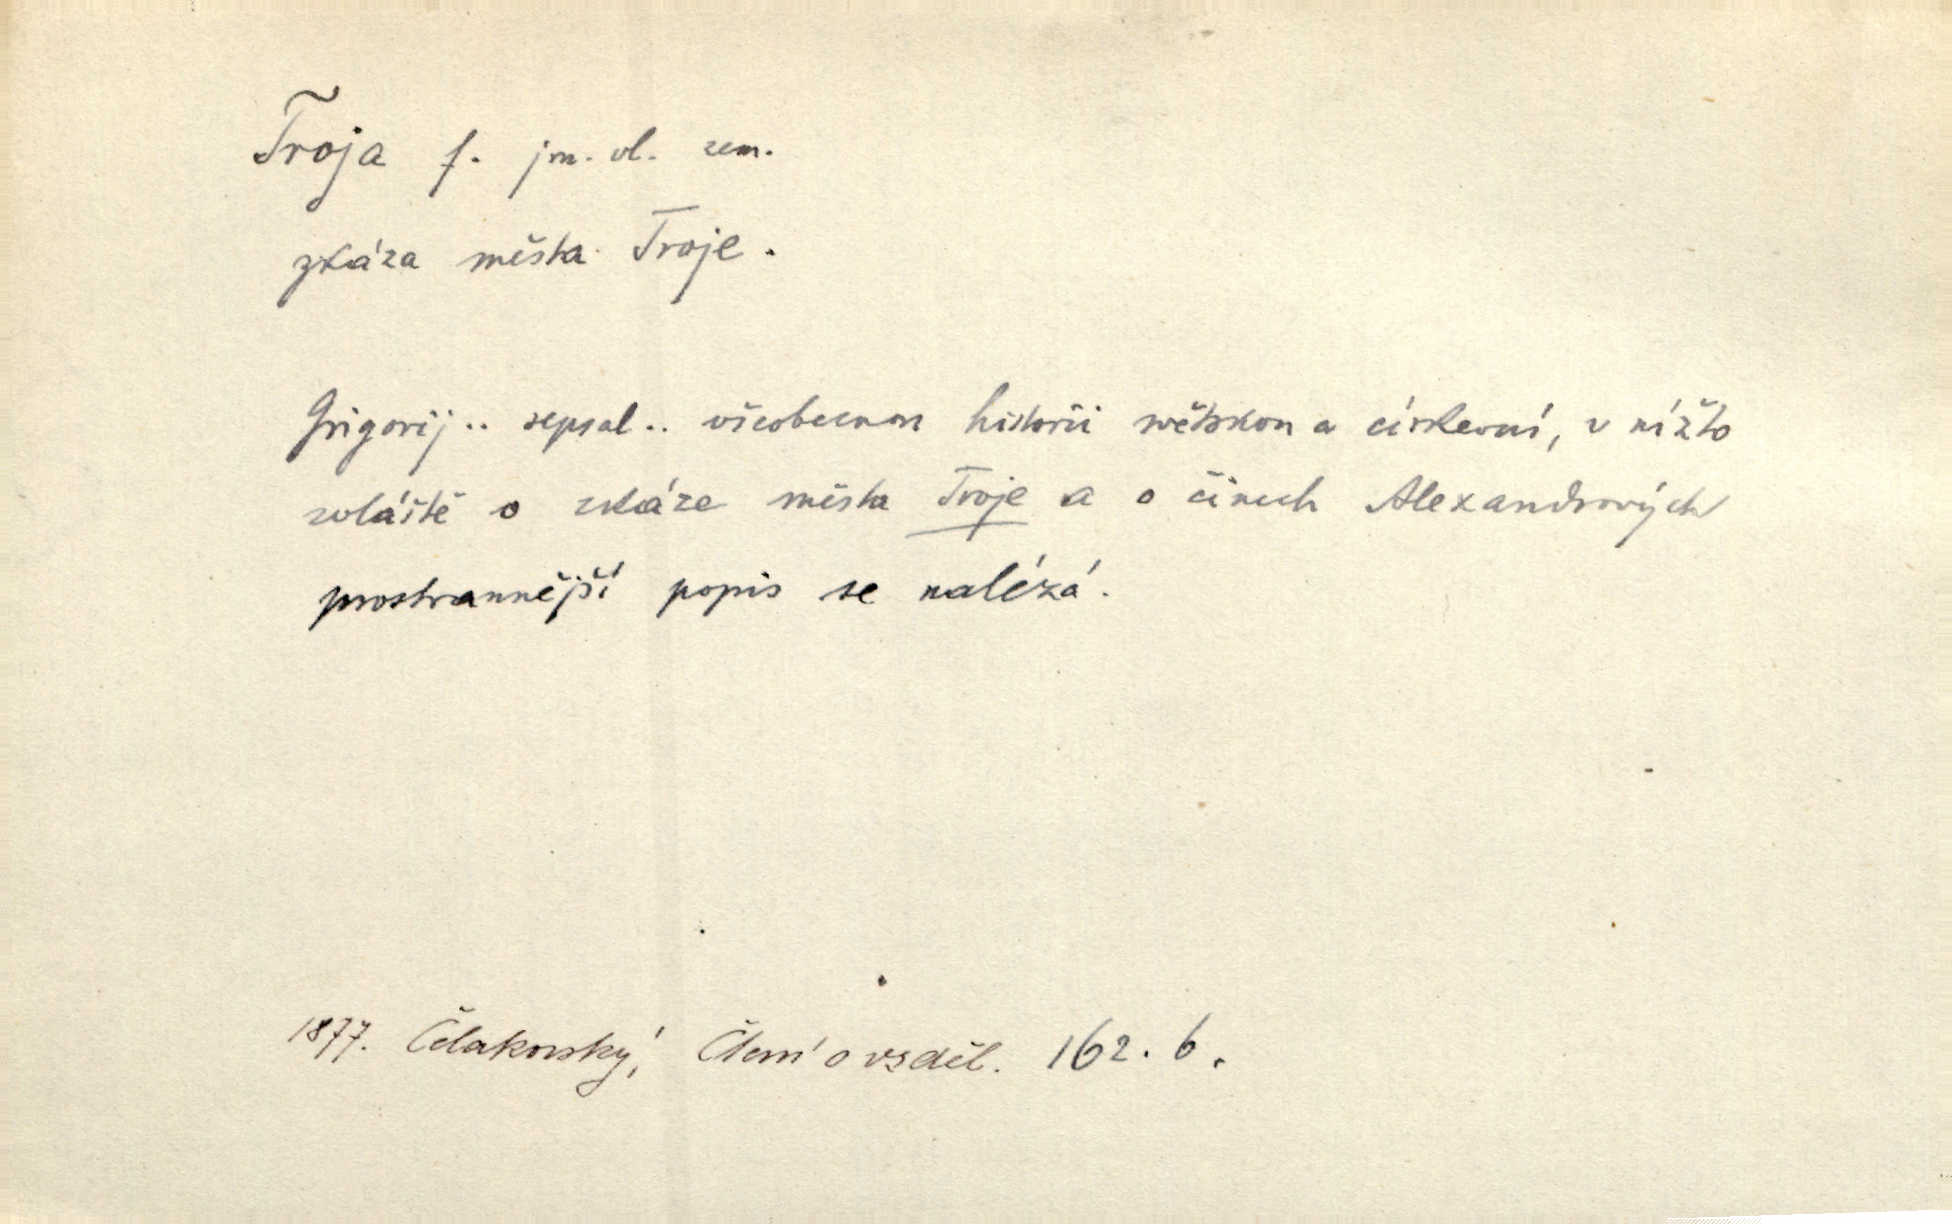 Troja f. jm. vl. zem.
zkáza města Troje.
Grigorij.. sepsal.. všeobecnou historii světskou a církevní, v nížto
zvláště o zkáze města Troje a o činech Alexandrových
prostrannější popis se nalézá.
1877. Čelakovský, Čtení o vzděl. 162. 6.